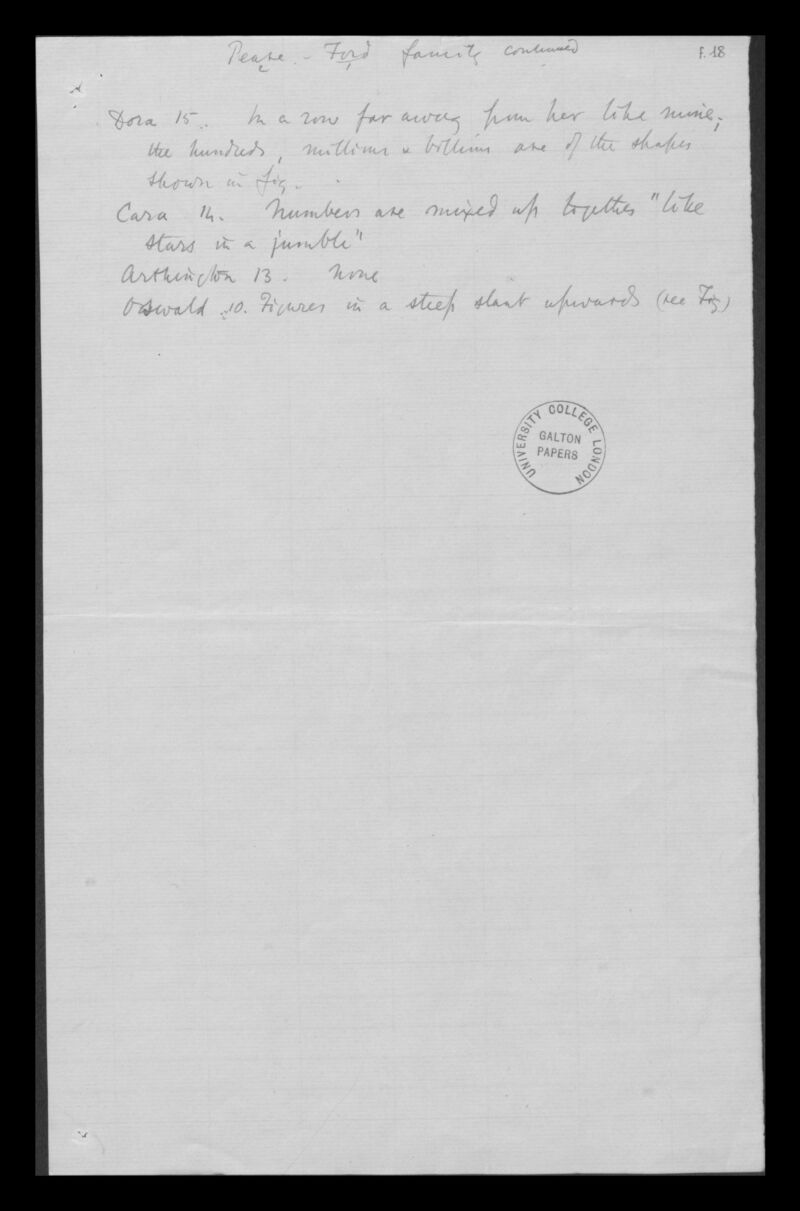 Pease - Ford family continued
f. 18
Dora 15. In a row far away from her like mine;
the hundreds, millions & billions are of the shapes
shown in fig.
Cara 14. Numbers are mixed up together "like
stars in a jumble"
Arthington 13. None
Oswald 10. Figures in a steep slant upwards (see Fig)
UNIVERSITY COLLEGE LONDON
GALTON
PAPERS